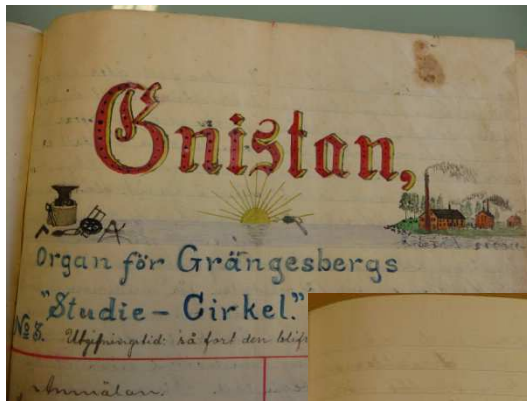 Gnistan,
Organ för Grängesbergs
"Studie-Cirkel."
No 3. Utgifningstid: så fort den blif
Anmälan.